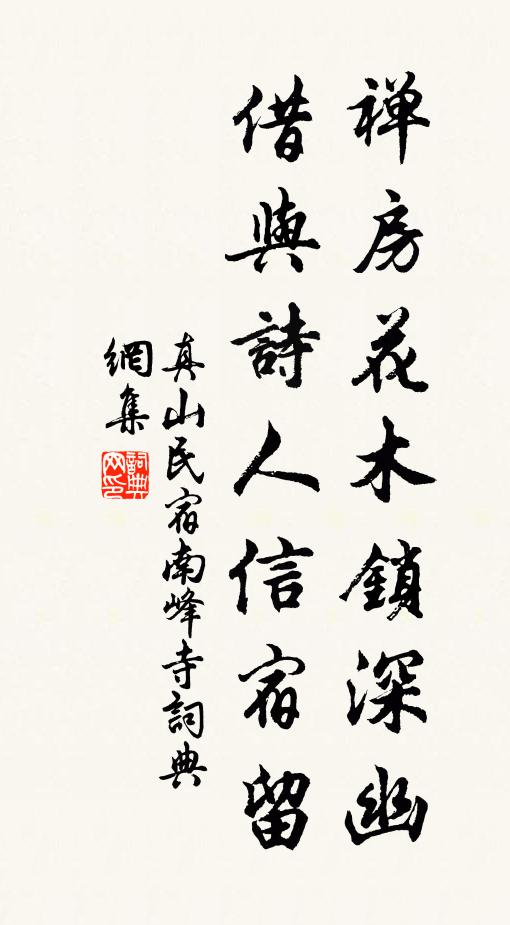 禅房花木鎖深幽
借與詩人信宿留
真山民宿南峰寺詞典
網集
詞典
网印